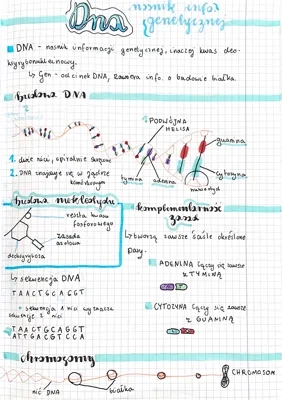 Dna
nośnik infor
genetycznej
DNA - nośnik informacji genetycznej, inaczej kwas deo-
ksyrybonukleinowy.
↳ Gen - odcinek DNA, zawiera info. o budowie białka.
Budowa DNA
PODWÓJNA
HELISA
guanina
1. dwie nici, spiralnie skręcone
2. DNA znajduje się w jądrze
komórkowym
tymina
adenina
cytozyna
nukleotyd
Budowa nukleotydu
reszta kwasu
fosforowego
zasada
azotowa
deoksyryboza
Komplementarność
zasad
↳ tworzą zawsze ściśle określone
pary.
ADENINA łączy się zawsze
z TYMINĄ
↳ sekwencja DNA
TAACTGCAGGT
↳ sekwencja 1 nici wyznacza
sekwencję 2 nici
TAACTGCAGGT
ATTGACGTCCA
CYTOZYNA łączy się zawsze
z GUANINĄ
Chromosomy
CHROMOSOM
nić DNA
białka